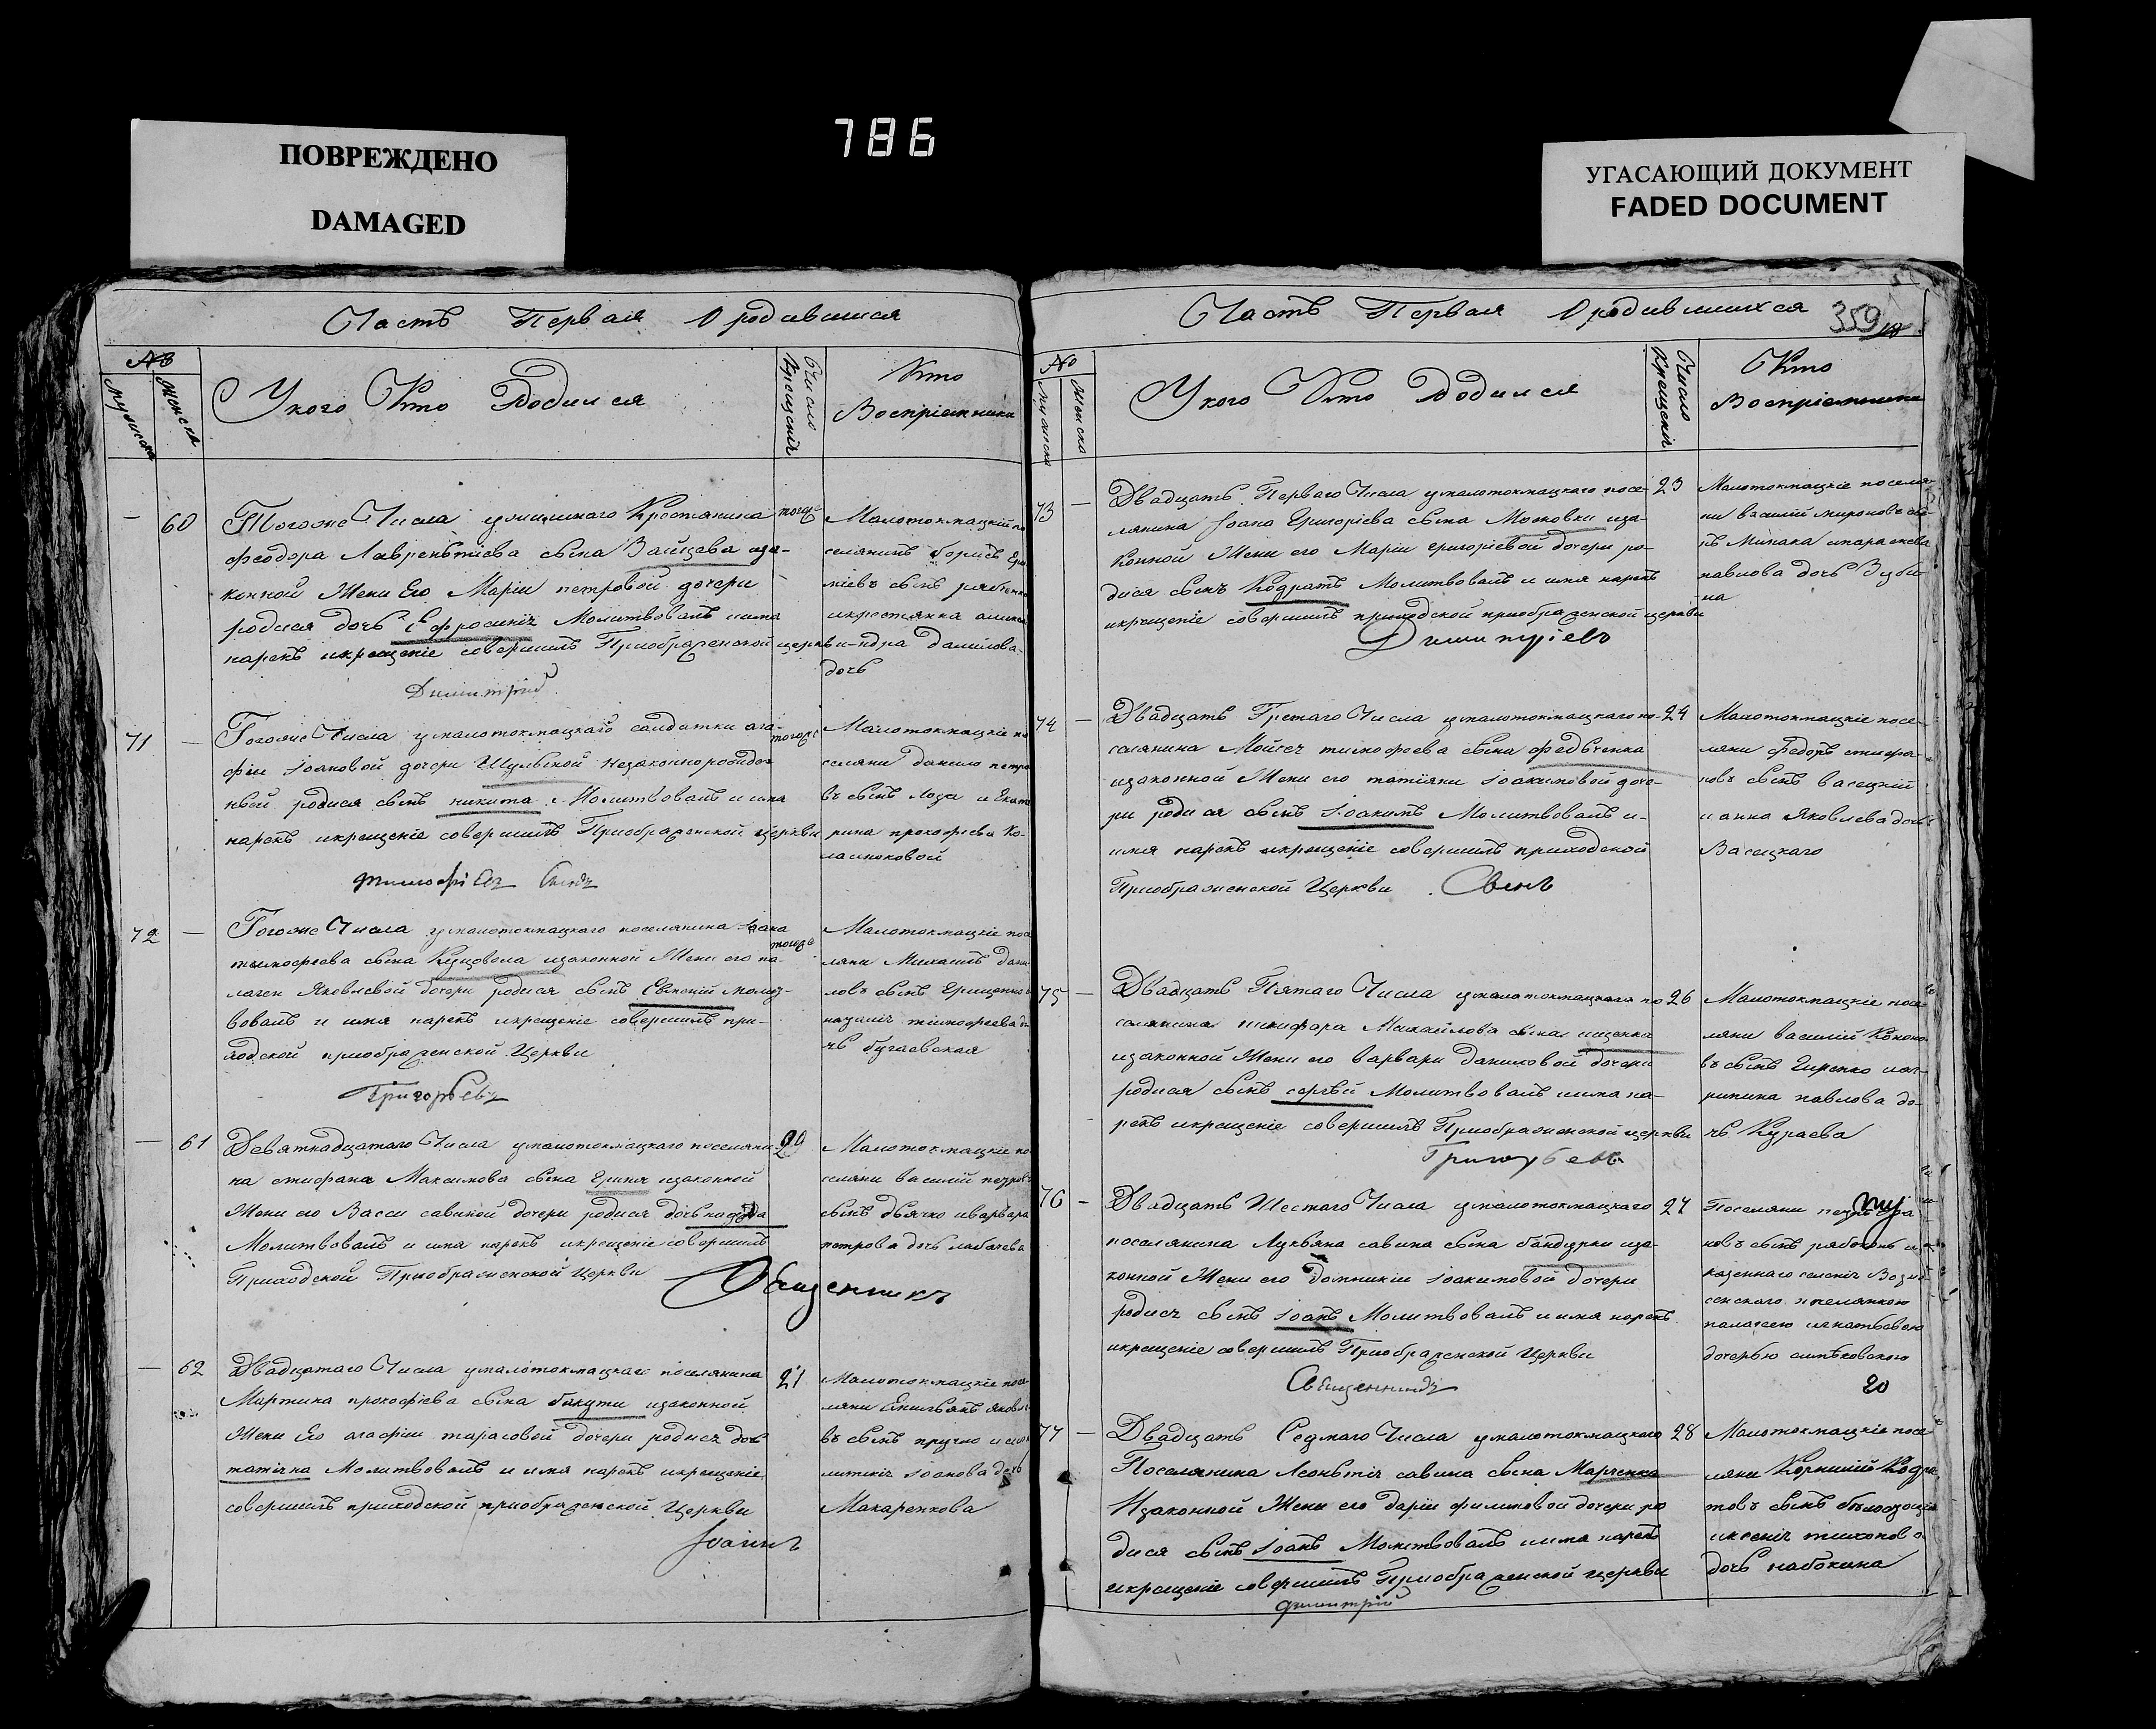 786
ПОВРЕЖДЕНО
DAMAGED
УГАСАЮЩИЙ ДОКУМЕНТ
FADED DOCUMENT
Часть Первая О родившихся
№
Мужеска
Женска
У кого Кто Родился
Число Крещения
Кто Воспріемники
60
Тогоже Числа Крестянина
феодора Лаврентіева сына Зайцева иза-
конной Жени Его Маріи петровой дочери
родися дочь Ефросинія Молитвовалъ и имя
нарекъ икрещеніе совершилъ Приображенской церкви
Димитрій
тогоже
Малотокмацкій по
селянинъ борисъ
сынъ
икрестянка алекса
ндра данилова
дочь
71
Тогоже Числа умалотокмацкаго солдатки ага-
фіи Іоановой дочери Шульской незаконнорожден
ной родися сынъ никита Молитвовалъ и имя
нарекъ икрещеніе совершилъ Приображенской церкви
тогоже
Малотокмацкіе по
селяни данило петро
въ сынъ Лоза и Екате
рина прокофіева Ко-
72
Тогоже Числа умалотокмацкаго поселянина Іоана
тимофеева сына изаконной Жени его па-
лагеи Яковлевой дочери родися сынъ Евменій молит-
вовалъ и имя нарекъ икрещеніе совершилъ при-
ходской приображенской Церкви
Григорьевъ
тогоже
Малотокмацкіе посе
ляни Михаилъ дани
ловъ сынъ Грищенко
тимофеева до
чь бугаевская
61
Девятнадцатаго Числа умалотокмацкаго поселяни-
на стефана Максимова сына изаконной
Жени его Васси савиной дочери родися дочь надежда
Молитвовалъ и имя нарекъ икрещеніе совершилъ
Приходской Приображенской Церкви
Священникъ
20
Малотокмацкіе по
селяни василій петровъ
сынъ дьячко иварвара
петрова дочь
62
Двадцатаго Числа умалотокмацкаго поселянина
Мартина прокофіева сына бакути изаконной
Жени Его агафіи тарасовой дочери родися дочь
татіяна Молитвовалъ и имя нарекъ икрещеніе
совершилъ приходской приображенской Церкви
Іоаннъ
21
Малотокмацкіе посе
ляни Емильянъ яковле
въ сынъ
Іоанова дочь
Макаренкова
Часть Первая О родившихся
359
№
Мужеска
Женска
У кого Кто Родился
Число Крещения
Кто Воспріемники
73
Двадцать Перваго Числа умалотокмацкаго посе-
лянина Іоана Григоріева сына Московки иза-
конной Жени его Маріи григоріевой дочери ро-
дися сынъ Кодратъ Молитвовалъ и имя нарекъ
икрещеніе совершилъ приходской приображенской церкви
Димитріевъ
23
Малотокмацкіе поселя-
ни василій мироновъ сы-
нъ Минака ипараскева
павлова дочь
74
Двадцать Третаго Числа умалотокмацкаго по-
селянина Мойсея тимофеева сына федченка
изаконной Жени его татіяни Іоакимовой доче-
ри родися сынъ Іоакимъ Молитвовалъ и
имя нарекъ икрещеніе совершилъ приходской
Приображенской Церкви
24
Малотокмацкіе посе-
ляни федоръ стефа-
новъ сынъ васецкій
и анна Яковлева дочь
Васецкаго
75
Двадцать Пятаго Числа умалотокмацкаго по
селянина никифора Михайлова сына ищенка
изаконной Жени его варвари даниловой дочери
родися сынъ сергѣй Молитвовалъ и имя на-
рекъ икрещеніе совершилъ Приображенской церкви
Григорьевъ
26
Малотокмацкіе посе
ляни василій Кононо
въ сынъ Гиренко иаг-
рипина павлова до-
чь Кураева
76
Двадцать Шестаго Числа умалотокмацкаго
поселянина Лукьяна савина сына бандурки иза-
конной Жени его домникіи Іоакимовой дочери
родися сынъ Іоанъ Молитвовалъ и имя нарекъ
икрещеніе совершилъ Приображенской Церкви
Священникъ
27
Поселяни
новъ сынъ рябоконь и
казеннаго селенія Возне
сенскаго
палагею игнатьевою
дочерью
20
77
Двадцать Седмаго Числа умалотокмацкаго
Поселянина Леонтія савина сына Марченка
Изаконной Жени его даріи филиповой дочери ро
дися сынъ Іоанъ Молитвовалъ и имя нарекъ
икрещеніе совершилъ Приображенской церкви
димитрій
28
Малотокмацкіе посе
ляни Корнилій Кодра
товъ сынъ
иксенія тихонова
дочь набокина